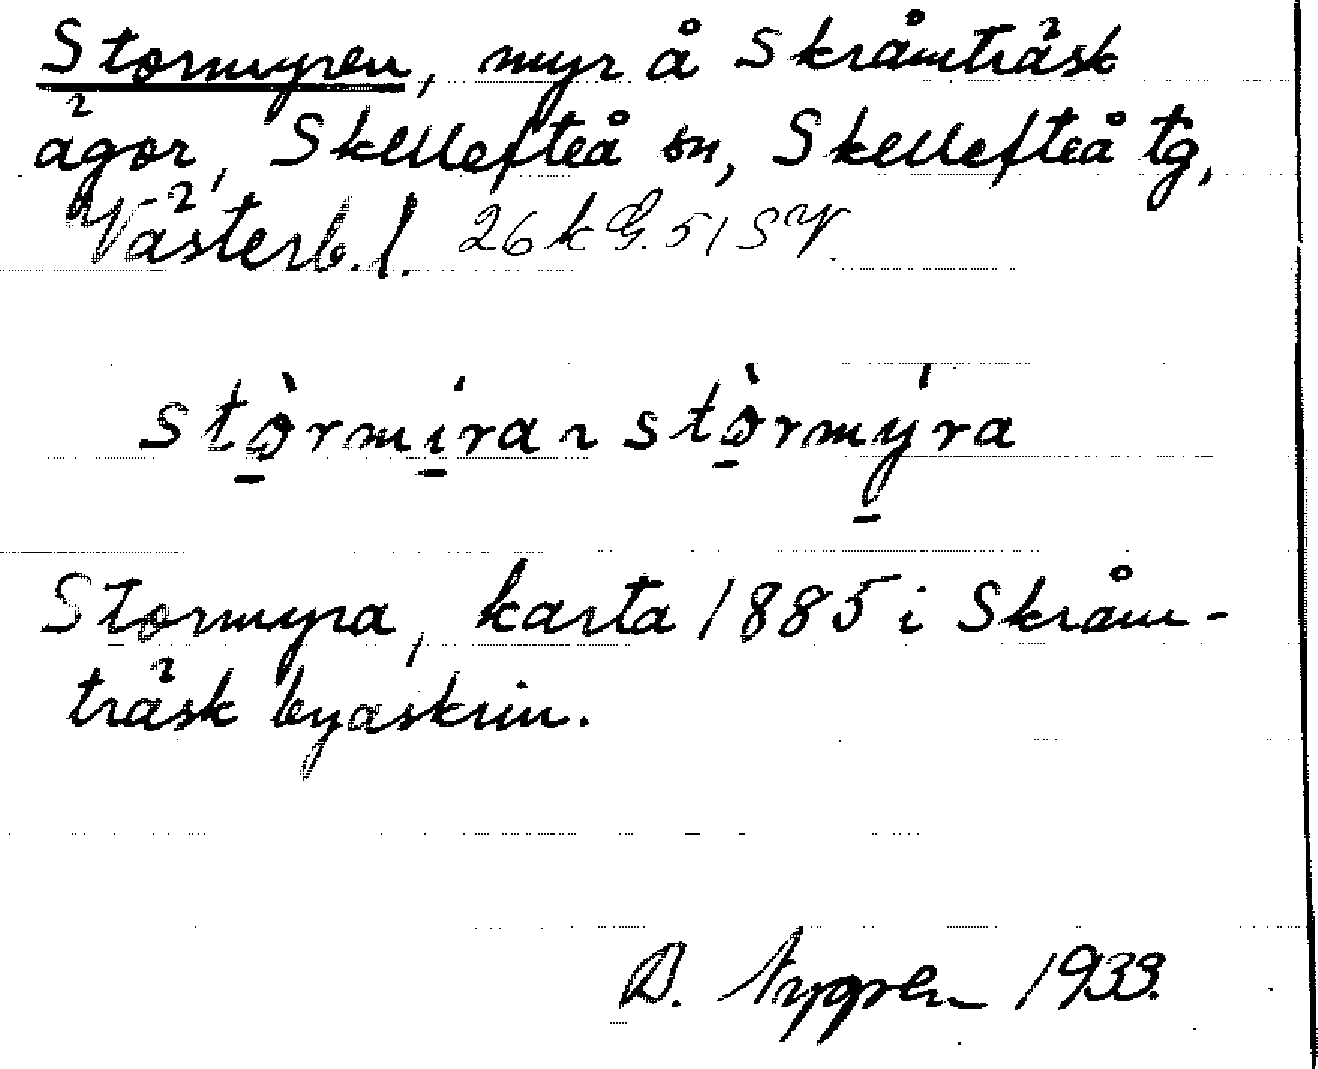 Stormyren, myr å Skråmträsk
ägor, Skellefteå sn, Skellefteå tg,
Västerb. l. 26 k G. 51 SV.
stò̠rmí̠ra ~ stò̠rmý̠ra
Stormyra, karta 1885 i Skråm-
träsk byaskrin.
B. Nygren 1933.